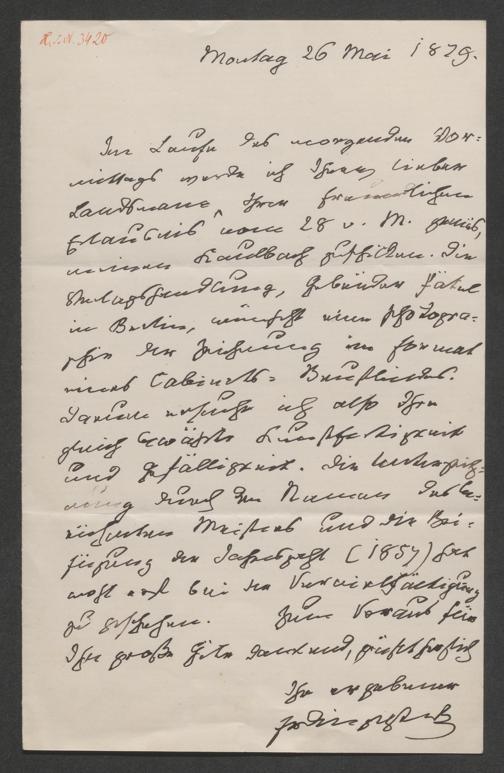 Montag 26 Mai 1879.
Im Laufe des morgenden Vor-
mittags werde ich Ihnen, lieber
Landsmann, Ihrer freundlichen
Erlaubnis vom 28 v. M. gemäß,
meinen Kaulbach zuschicken. Die
Verlagshandlung, Gebrüder Pätel
in Berlin, wünscht eine Photogra-
phie der Zeichnung im Format
eines Cabinets-Brustbildes.
Darum ersuche ich also Ihre
gleich bewährte Kunstfertigkeit
und Gefälligkeit. Die Unterzeich-
nung durch den Namen des be-
rühmten Meisters und die Bei-
fügung der Jahreszahl (1857) hat
wohl erst bei der Vervielfältigung
zu geschehen. Zum Voraus für
Ihre große Güte dankend, grüßt herzlich
Ihr ergebener